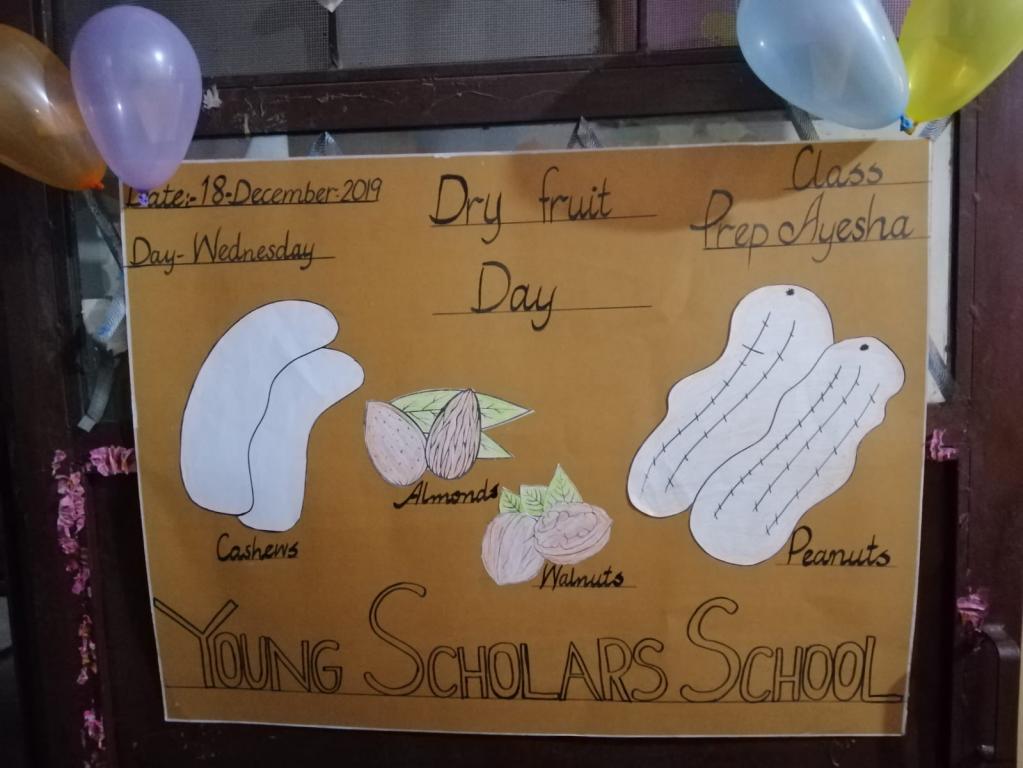 Date:-18-December-2019
Day-Wednesday
Dry fruit
Day
Class
Prep Ayesha
Cashews
Almonds
Walnuts
Peanuts
YOUNG SCHOLARS SCHOOL